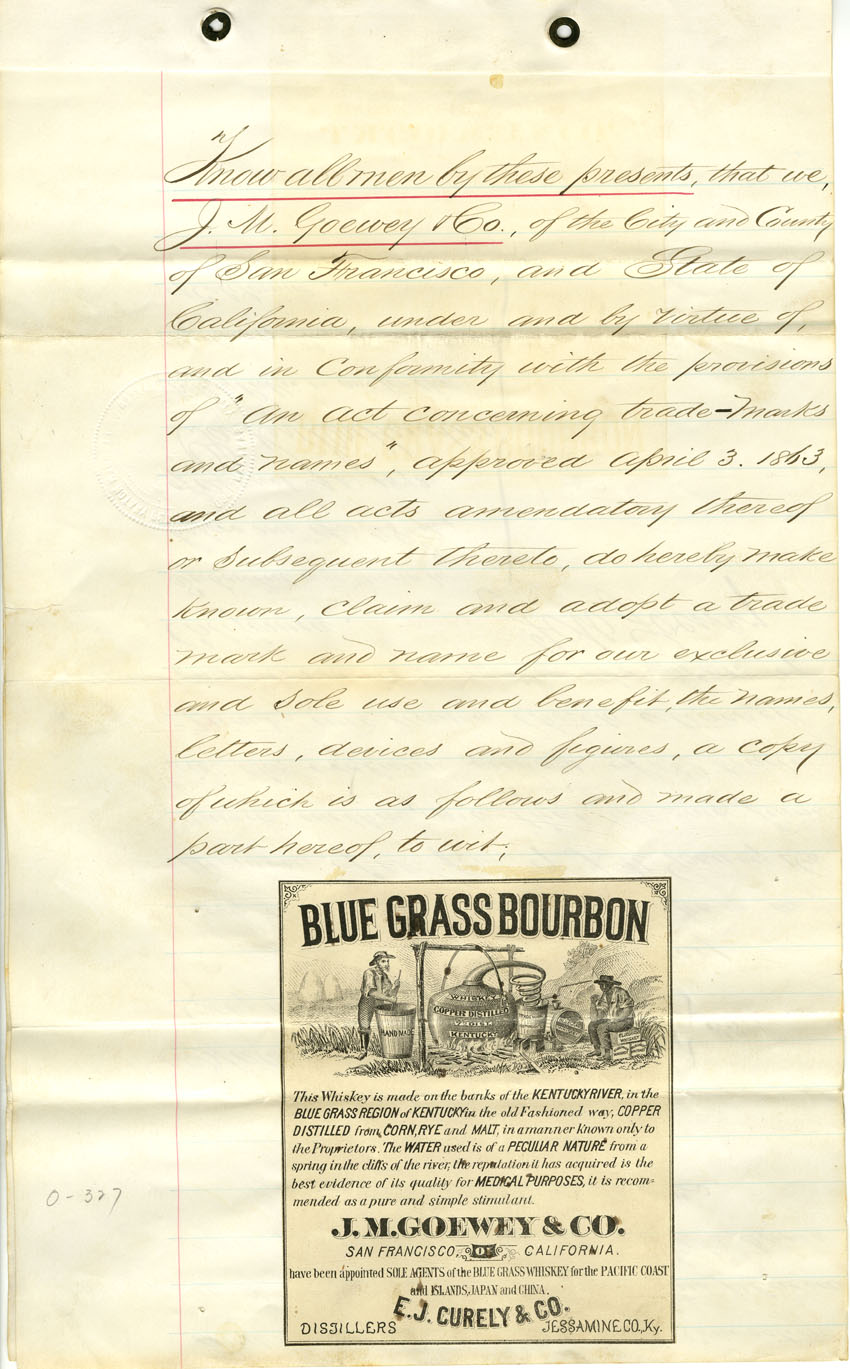 Know all men by these presents, that we,
J. M. Goewey & Co., of the City and County
of San Francisco, and State of
California, under and by virtue of,
and in Conformity with the provisions
of "An act concerning trade-marks
and names", approved April 3. 1863,
and all acts amendatory thereof
or Subsequent thereto, do hereby make
Known, claim and adopt a trade
mark and name for our exclusive
and Sole use and benefit, the names,
letters, devices and figures, a copy
of which is as follows and made a
part hereof, to wit;
BLUE GRASS BOURBON
WHISKEY
COPPER DISTILLED
7TH DIST.
KENTUCKY
HAND MADE
This Whiskey is made on the banks of the KENTUCKY RIVER, in the
BLUE GRASS REGION of KENTUCKY in the old Fashioned way, COPPER
DISTILLED from CORN, RYE and MALT, in a manner known only to
the Proprietors. The WATER used is of a PECULIAR NATURE from a
spring in the cliffs of the river, the reputation it has acquired is the
best evidence of its quality for MEDICAL PURPOSES, it is recom=
mended as a pure and simple stimulant.
J. M. GOEWEY & CO.
SAN FRANCISCO OF CALIFORNIA.
have been appointed SOLE AGENTS of the BLUE GRASS WHISKEY for the PACIFIC COAST
and ISLANDS, JAPAN and CHINA.
E. J. CURELY & CO.
DISTILLERS JESSAMINE CO., Ky.
0-327